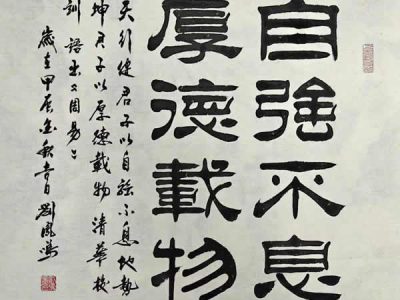 自強不息
厚德載物
天行健君子以自強不息地勢
坤君子以厚德載物清華校
訓語出周易
歲在甲辰金秋吉日劉鳳